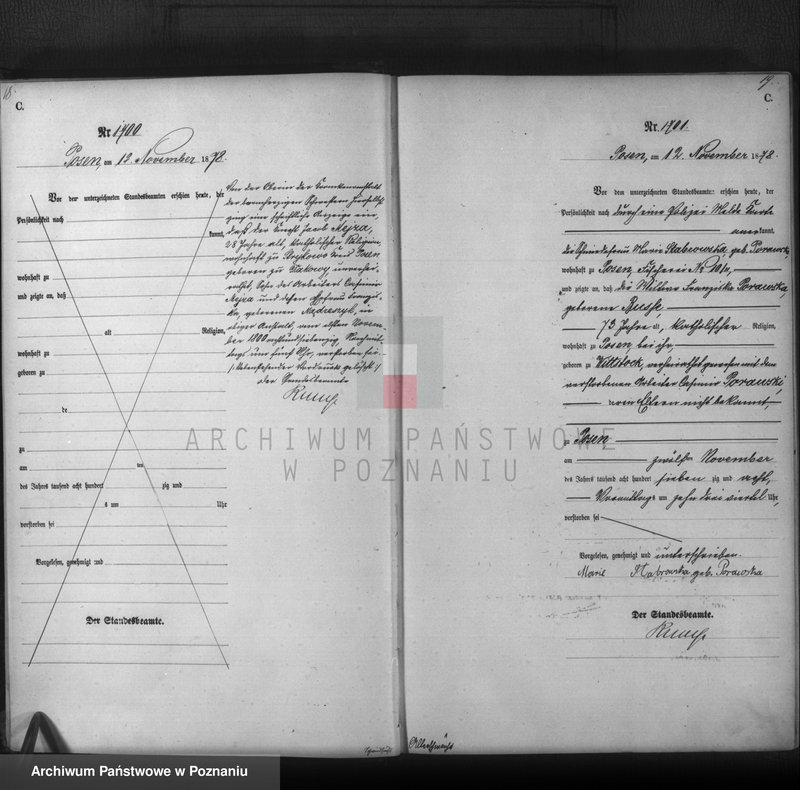 18
C.
Nr 1700
Posen, am 12 November 1878.
Vor der unterzeichneten Standesbeamten erschien heute, der
Persönlichkeit nach
kannt,
wohnhaft zu
und zeigte an, daß
alt Religion,
wohnhaft zu
geboren zu
de
zu
am ten
des Jahres tausend acht hundert zig und
s um Uhr
verstorben sei
Vorgelesen, genehmigt und
Der Standesbeamte.
Von der Oberin der Krankenanstalt
der barmherzigen Schwestern hierselbst
ging eine schriftliche Anzeige ein,
daß der Knecht Jacob Mejza,
28 Jahre alt, katholischer Religion,
wohnhaft zu Kreis Posen
geboren zu unverhei-
rathet, Sohn des Arbeiters Casimir
Mejza und dessen Ehefrau Franzis-
ka, geborenen in
Anstalt, am elften Novem-
ber 1800 achtundsiebenzig, Nachmit-
tags um fünf Uhr, verstorben sei.
Vorstehender Vordruck gelöscht
Der Standesbeamte
19
C.
Nr. 1701.
Posen, am 12. November 1878
Vor dem unterzeichneten Standesbeamten erschien heute, der
Persönlichkeit nach durch eine Polizei Melde Karte
anerkannt,
die Schneiderfrau Marie Stabrowska, geb. Porawska,
wohnhaft zu Posen, Fischerei Nr
und zeigte an, daß die Wittwe Franziska Porawska,
geborene Busse
73 Jahre alt, katholischer Religion,
wohnhaft zu Posen, bei ihr,
geboren zu Wittstock, verheirathet gewesen mit dem
verstorbenen Arbeiter Casimir Porawski,
deren Eltern nicht bekannt,
zu Posen
am zwölften November
des Jahres tausend acht hundert sieben zig und acht,
Vormittags um zehn drei viertel Uhr,
verstorben sei
Vorgelesen, genehmigt und unterschrieben.
Marie Stabrowska geb. Porawska
Der Standesbeamte.
ARCHIWUM PAŃSTWOWE
W POZNANIU
Archiwum Państwowe w Poznaniu